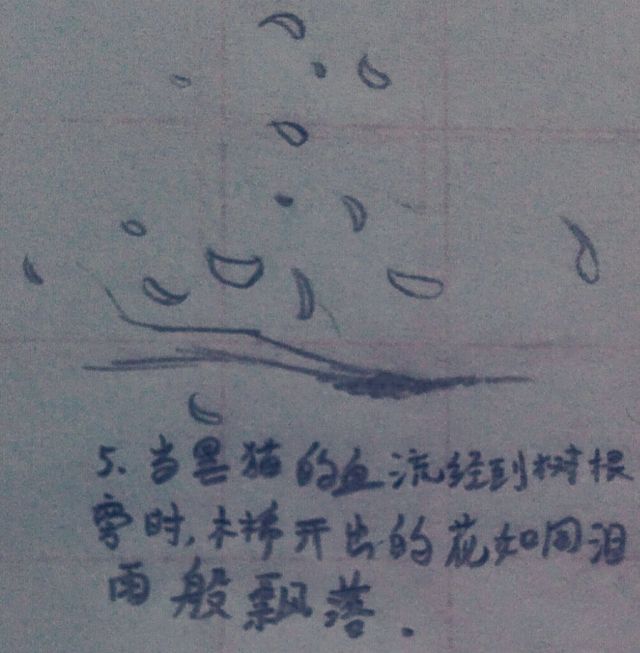 5、当黑猫的血流经到树根
旁时,木稀开出的花如同泪
雨般飘落.